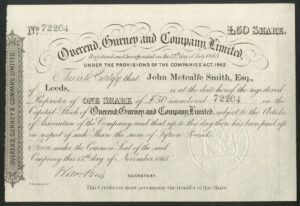 No 72264 £50 SHARE.
Overend, Gurney and Company, Limited,
Registered and Incorporated on the 12th day of July, 1865,
UNDER THE PROVISIONS OF THE COMPANIES ACT, 1862.
This is to Certify that John Metcalfe Smith, Esq.,
Leeds, is at the date hereof the registered
Proprietor of ONE SHARE of £50 numbered 72264 in the
Capital Stock of Overend, Gurney and Company, Limited, subject to the Articles
of Association of the Company; and that up to this day there has been paid up
in respect of such Share the sum of Fifteen Pounds.
Given under the Common Seal of the said
Company this 15th day of November, 1865.
SECRETARY.
This Certificate must accompany the transfer of this Share.
OVEREND, GURNEY & COMPANY, LIMITED.